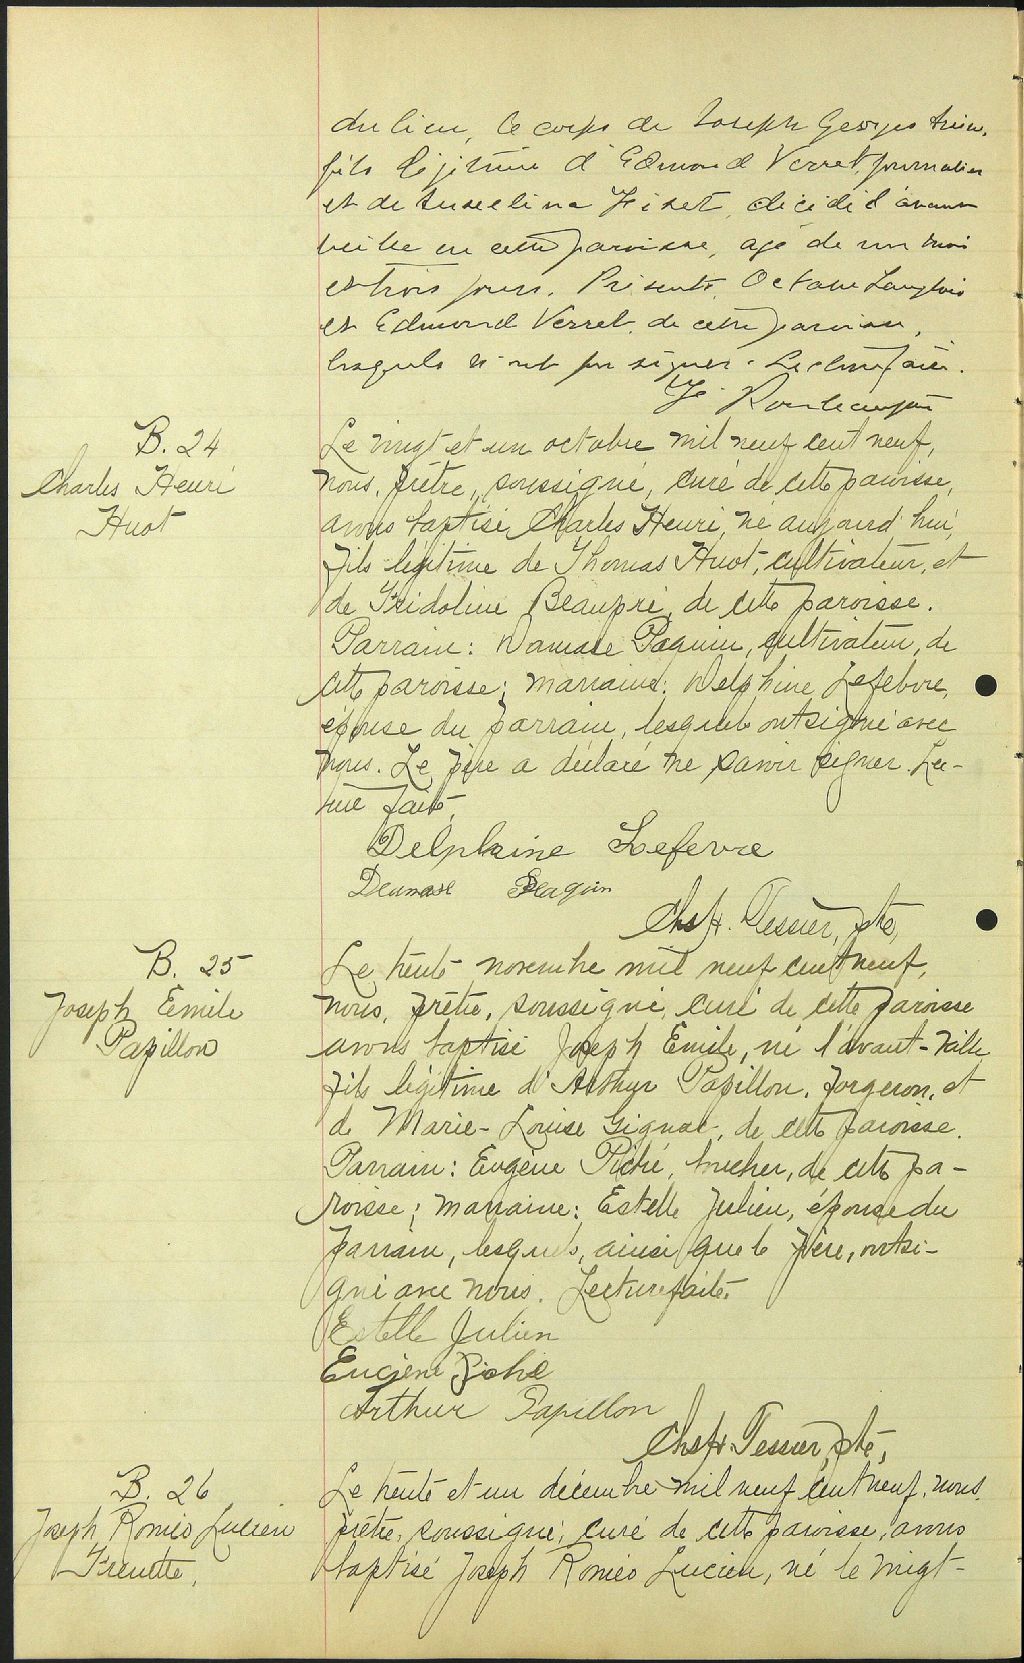 du lieu, le corps de Joseph Georges
fils légitime d'Edmond Verret, journalier
et de Fiset, décédé d'avant
veille en cette paroisse, agé de un mois
et trois jours. Présents, Octave Langlois
et Edmond Verret, de cette paroisse,
lesquels n'ont pu signer. Lecture faite.
B. 24
Charles Henri
Huot
Le vingt et un octobre mil neuf cent neuf,
nous, prêtre, soussigné, curé de cette paroisse,
avons baptisé Charles Henri, né aujourd'hui,
fils légitime de Thomas Huot, cultivateur, et
de Fridoline Beaupré, de cette paroisse.
Parrain: Damase Paquin, cultivateur, de
cette paroisse; marraine: Delphine Lefebvre,
épouse du parrain, lesquels ont signé avec
nous. Le père a déclaré ne savoir signer. Lec-
ture faite.
Delphine Lefevre
Damase Paquin
Chs H. Tessier, ptre,
B. 25
Joseph Emile
Papillon
Le trente novembre mil neuf cent neuf,
nous, prêtre, soussigné, curé de cette paroisse
avons baptisé Joseph Emile, né l'avant-veille
fils légitime d'Arthur Papillon, forgeron, et
de Marie-Louise Gignac, de cette paroisse.
Parrain: Eugène Piché, boucher, de cette pa-
roisse; marraine: Estelle Julien, épouse du
parrain, lesquels, ainsi que le père, ont si-
gné avec nous. Lecture faite.
Estelle Julien
Eugène Piché
Arthur Papillon
Chs H. Tessier, ptre,
B. 26
Joseph Roméo Lucien
Frenette,
Le trente et un décembre mil neuf cent neuf, nous,
prêtre, soussigné, curé de cette paroisse, avons
baptisé Joseph Roméo Lucien, né le vingt-